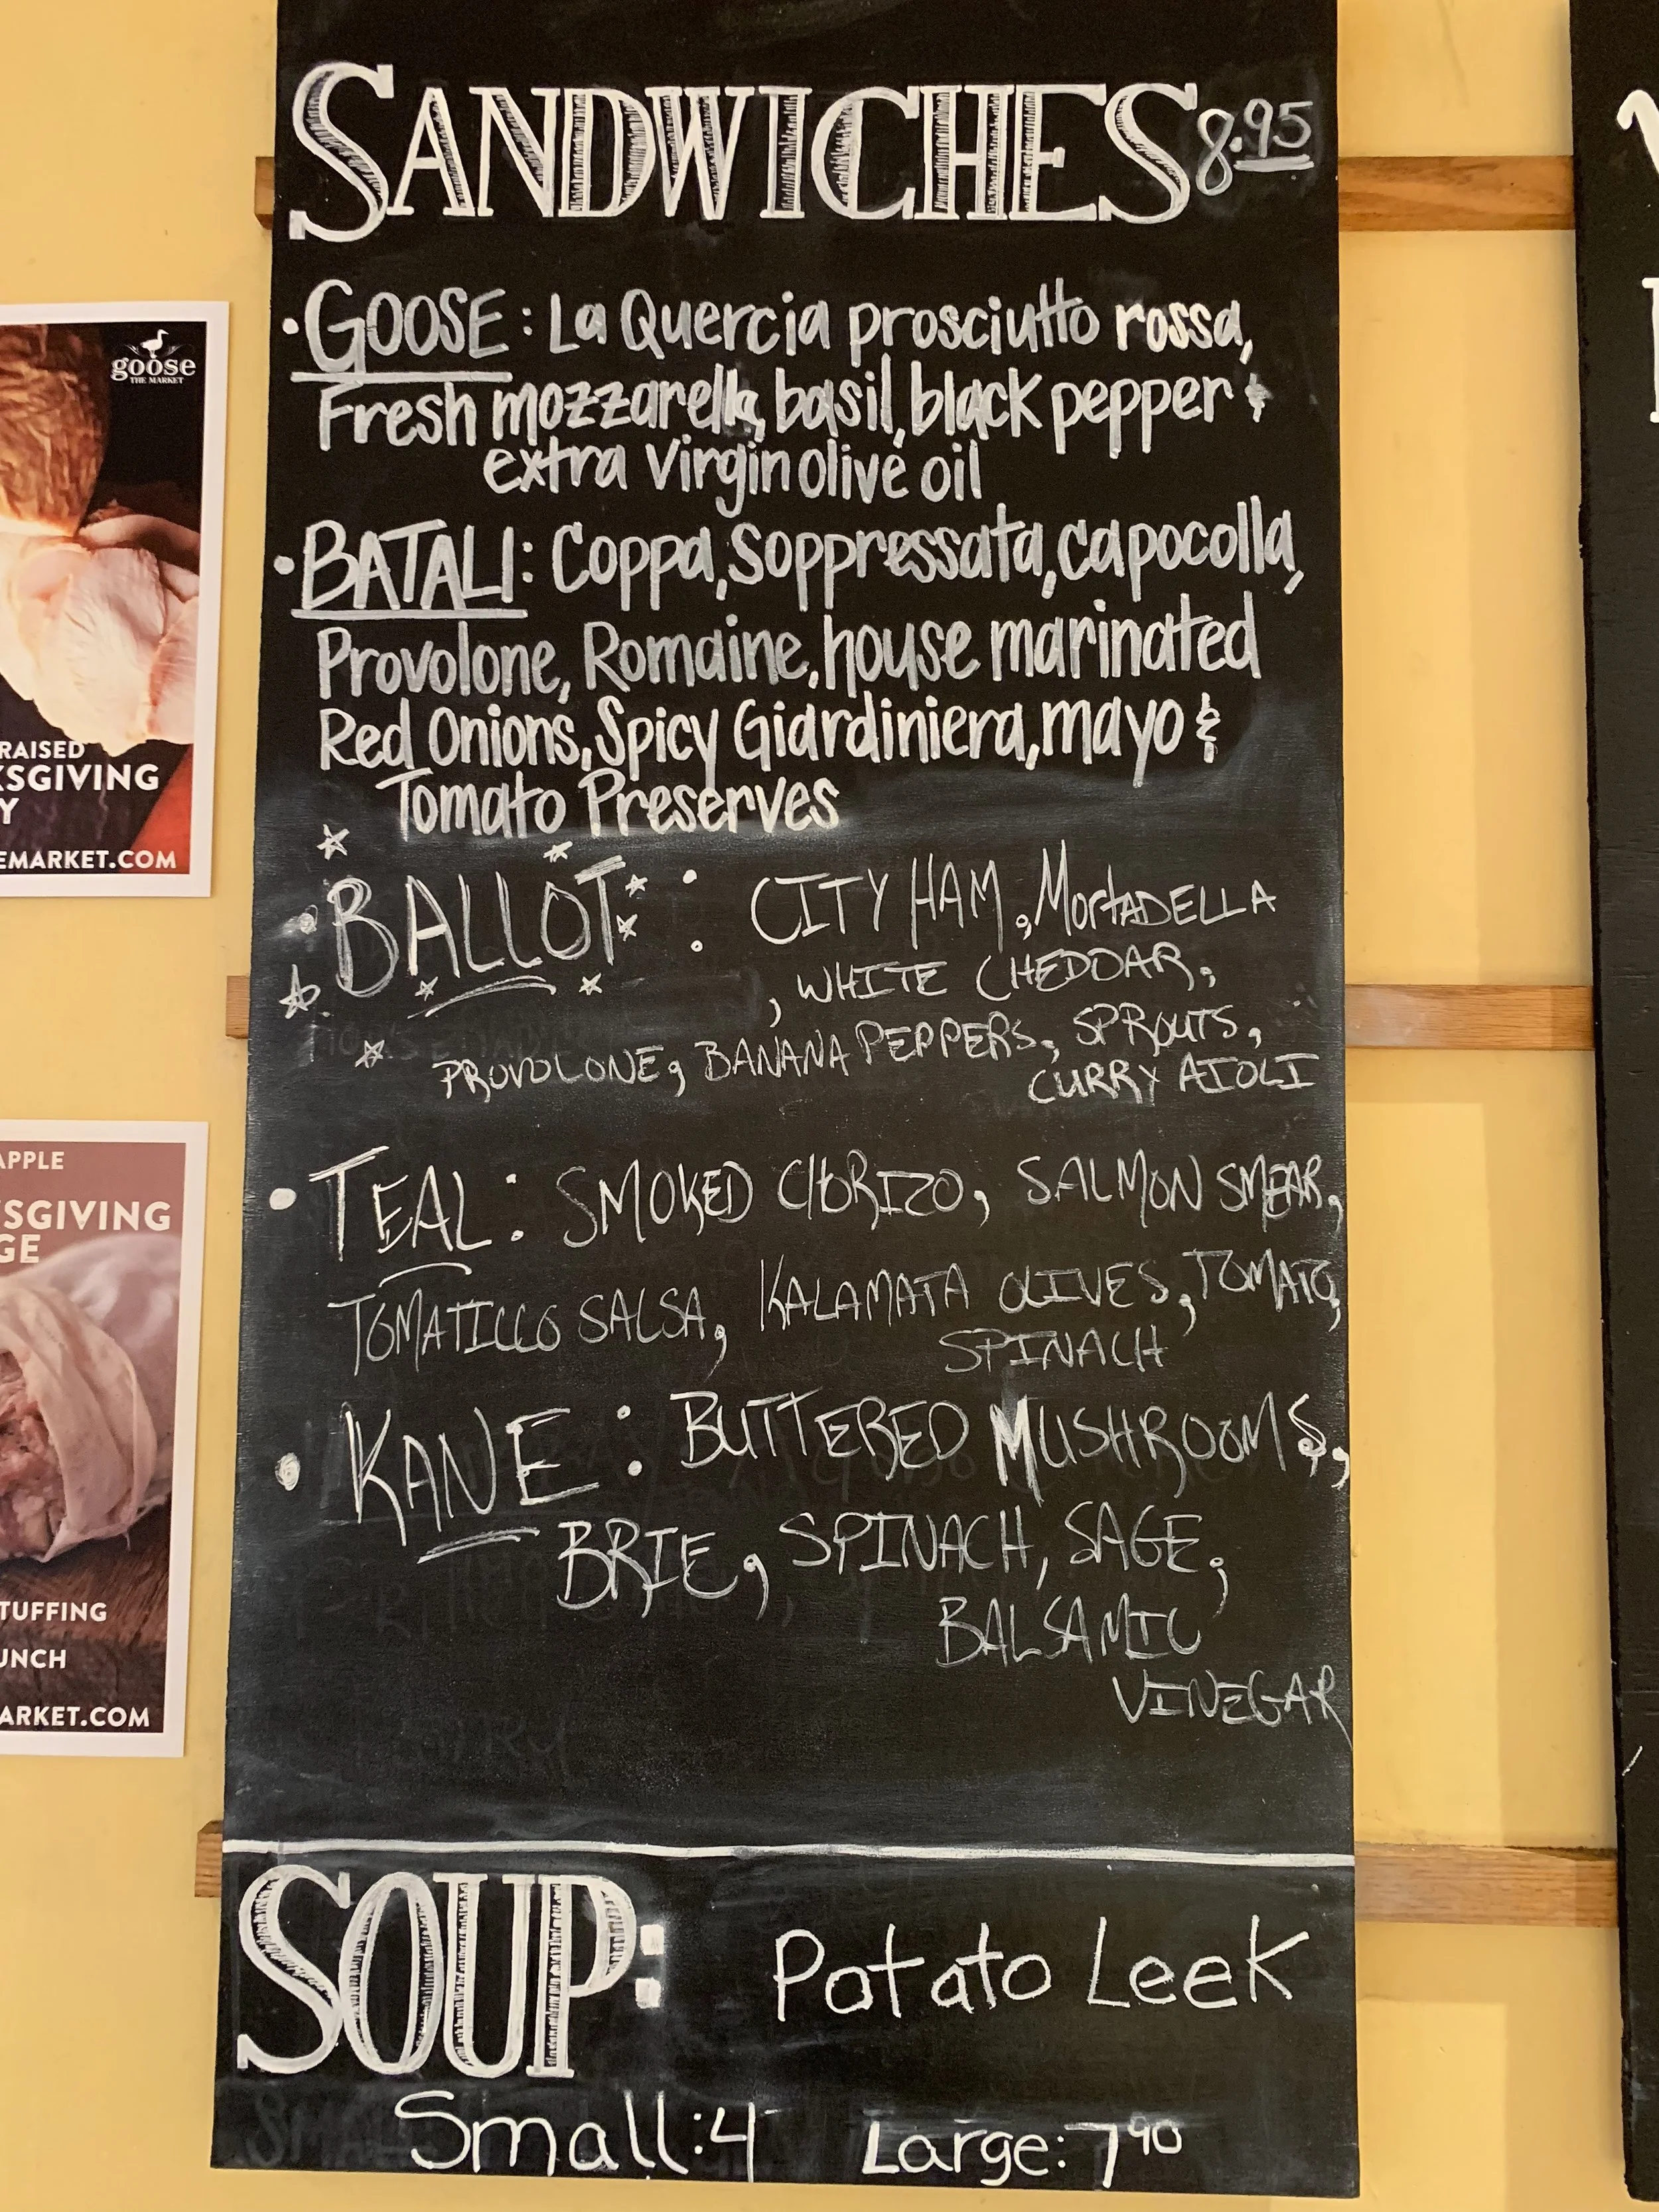 SANDWICHES 8.95
• GOOSE: La Quercia prosciutto rossa,
Fresh mozzarella, basil, black pepper &
extra Virgin olive oil
• BATALI: Coppa, Soppressata, capocolla,
Provolone, Romaine, house marinated
Red Onions, Spicy Giardiniera, mayo &
Tomato Preserves
• BALLOT: CITY HAM, MortADELLA
, WHITE CHEDDAR,
PROVOLONE, BANANA PEPPERS, SPROUTS,
CURRY AIOLI
• TEAL: SMOKED CHORIZO, SALMON SMEAR,
TOMATILLO SALSA, KALAMATA OLIVES, TOMATO,
SPINACH
• KANE: BUTTERED MUSHROOMS,
BRIE, SPINACH, SAGE,
BALSAMIC
VINEGAR
SOUP: Potato Leek
Small: 4 Large: 7.90
goose
THE MARKET
RAISED
KSGIVING
Y
EMARKET.COM
APPLE
SGIVING
GE
TUFFING
UNCH
ARKET.COM